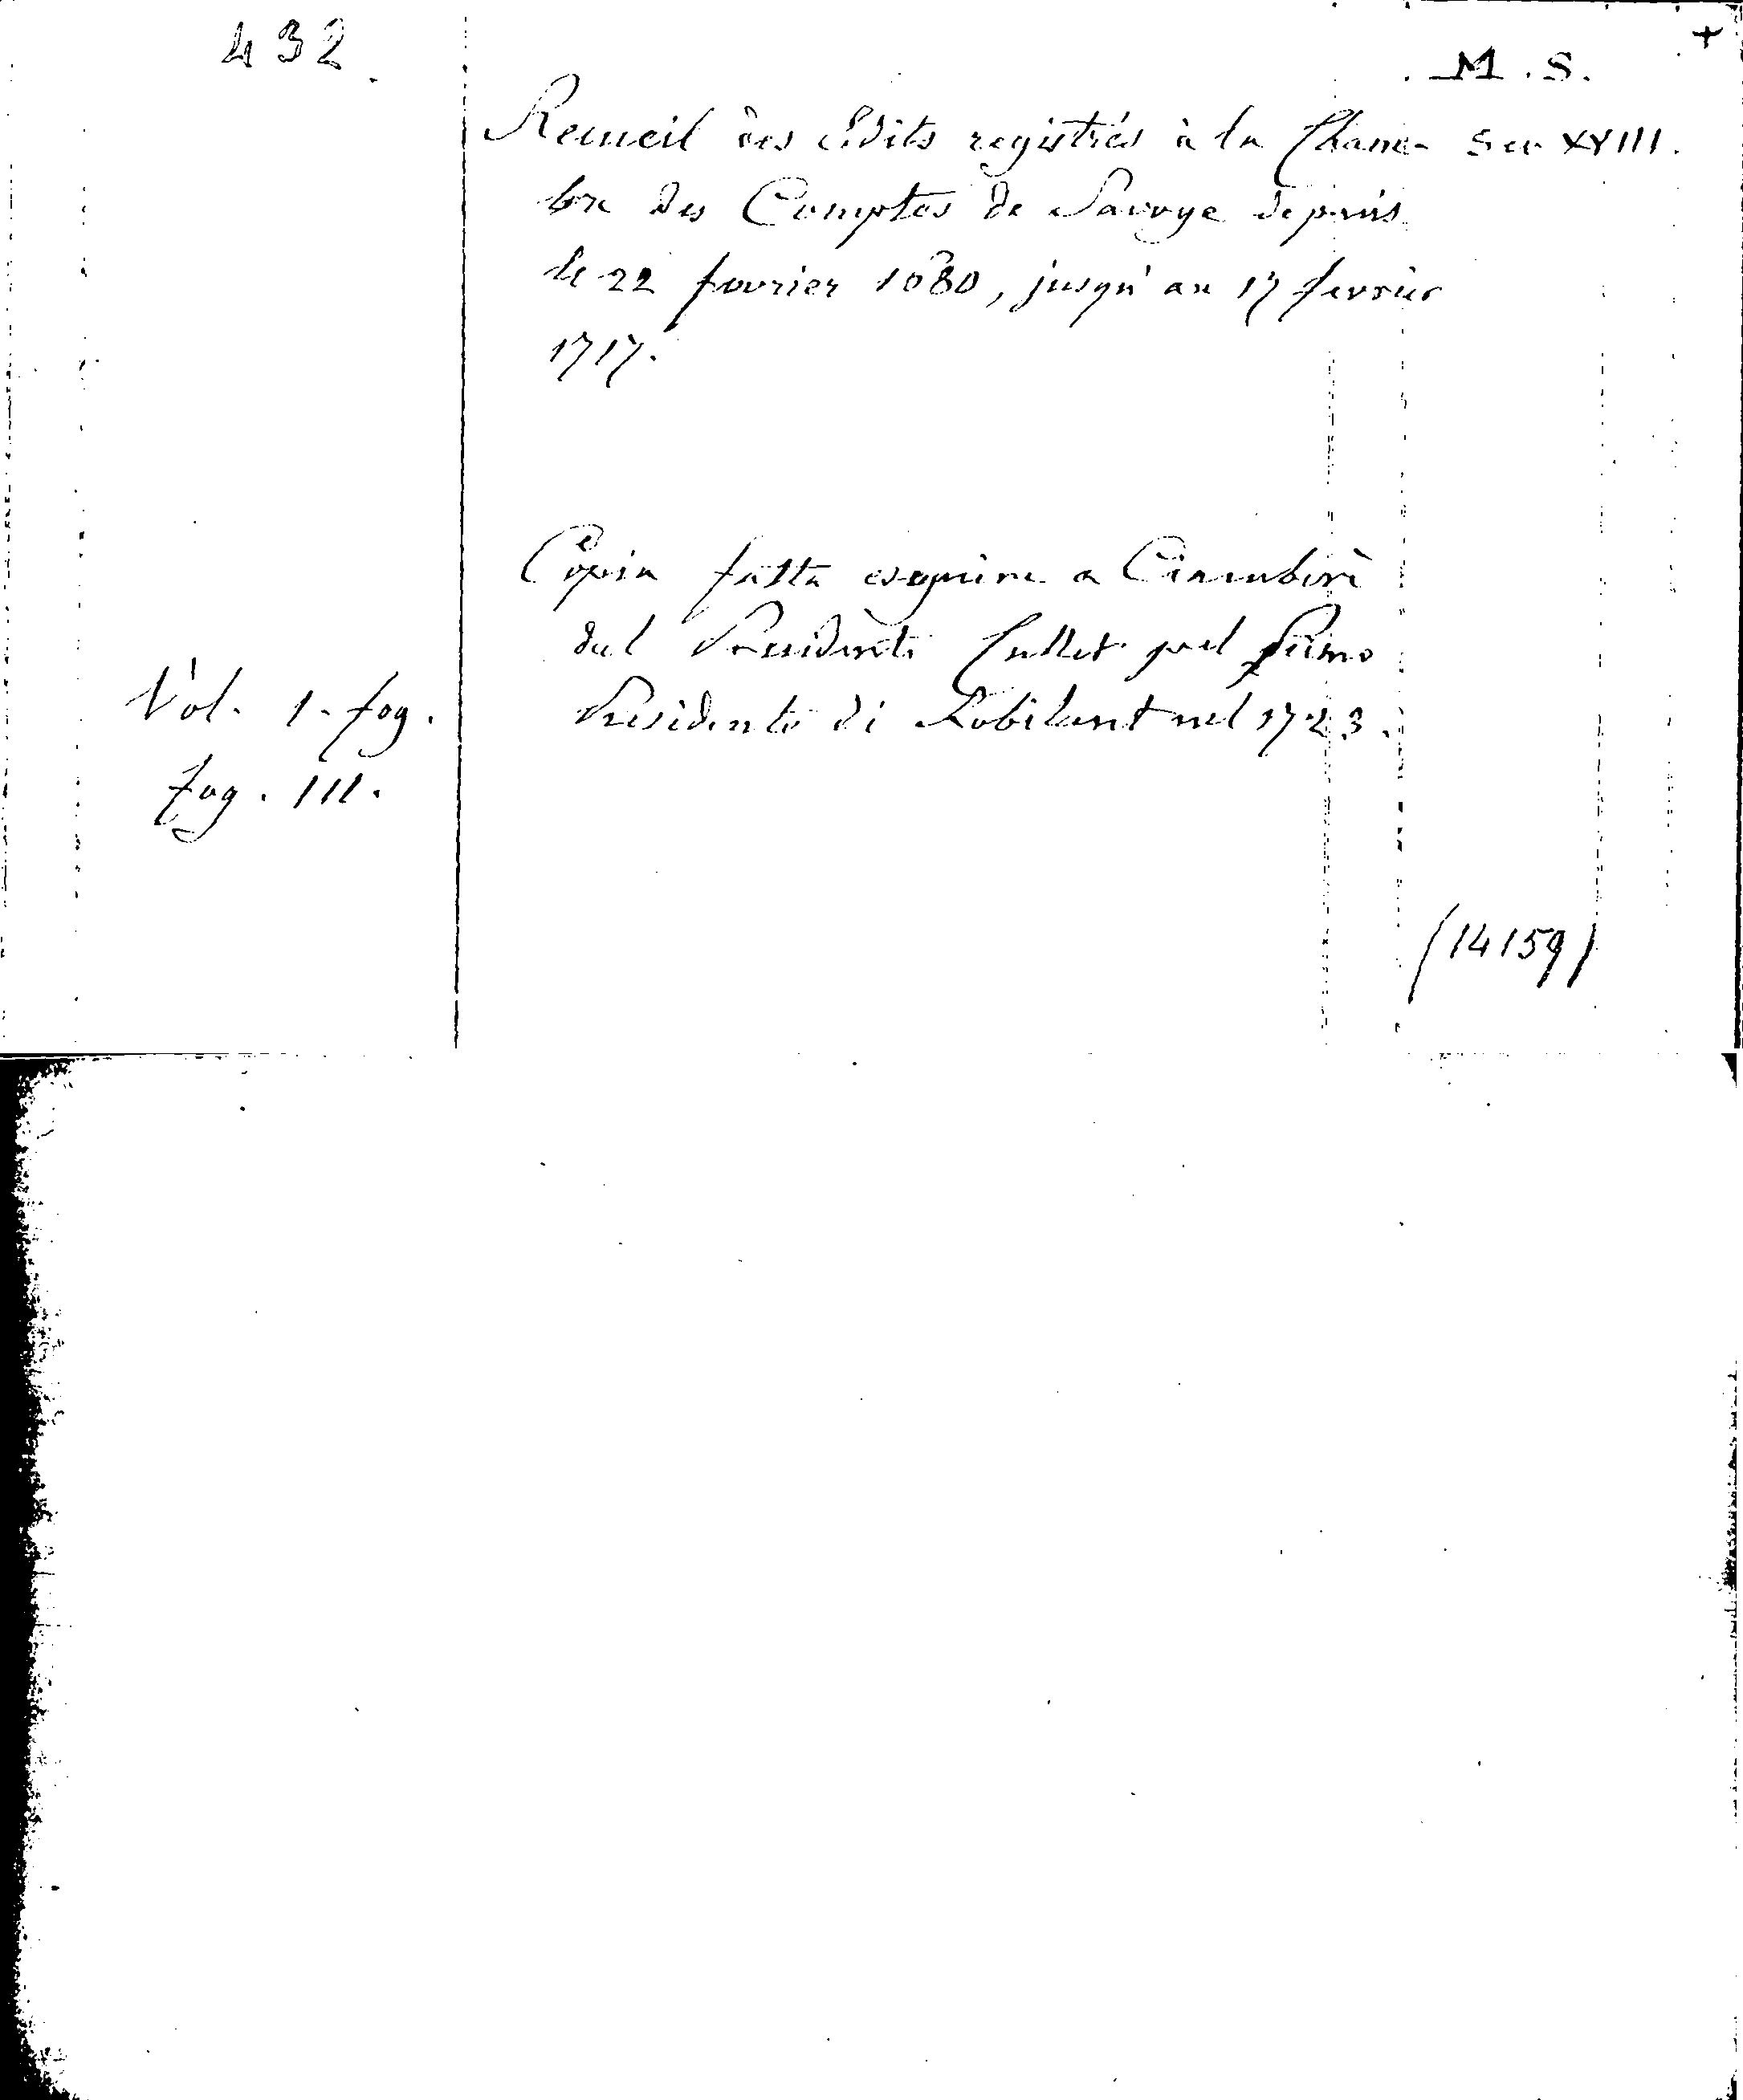 432.
M. S.
+
Recueil des Edits registrés à la Cham- Sec XVIII.
bre des Comptes de Savoye depuis
le 22 fevrier 1680, jusqu'au 17 fevrier
1717.
Copia fatta eseguire a Ciamberì
dal Presidente pel Primo
Vol. 1. fog.
Presidente di Robilant nel 1723.
fog. 111.
(14159)